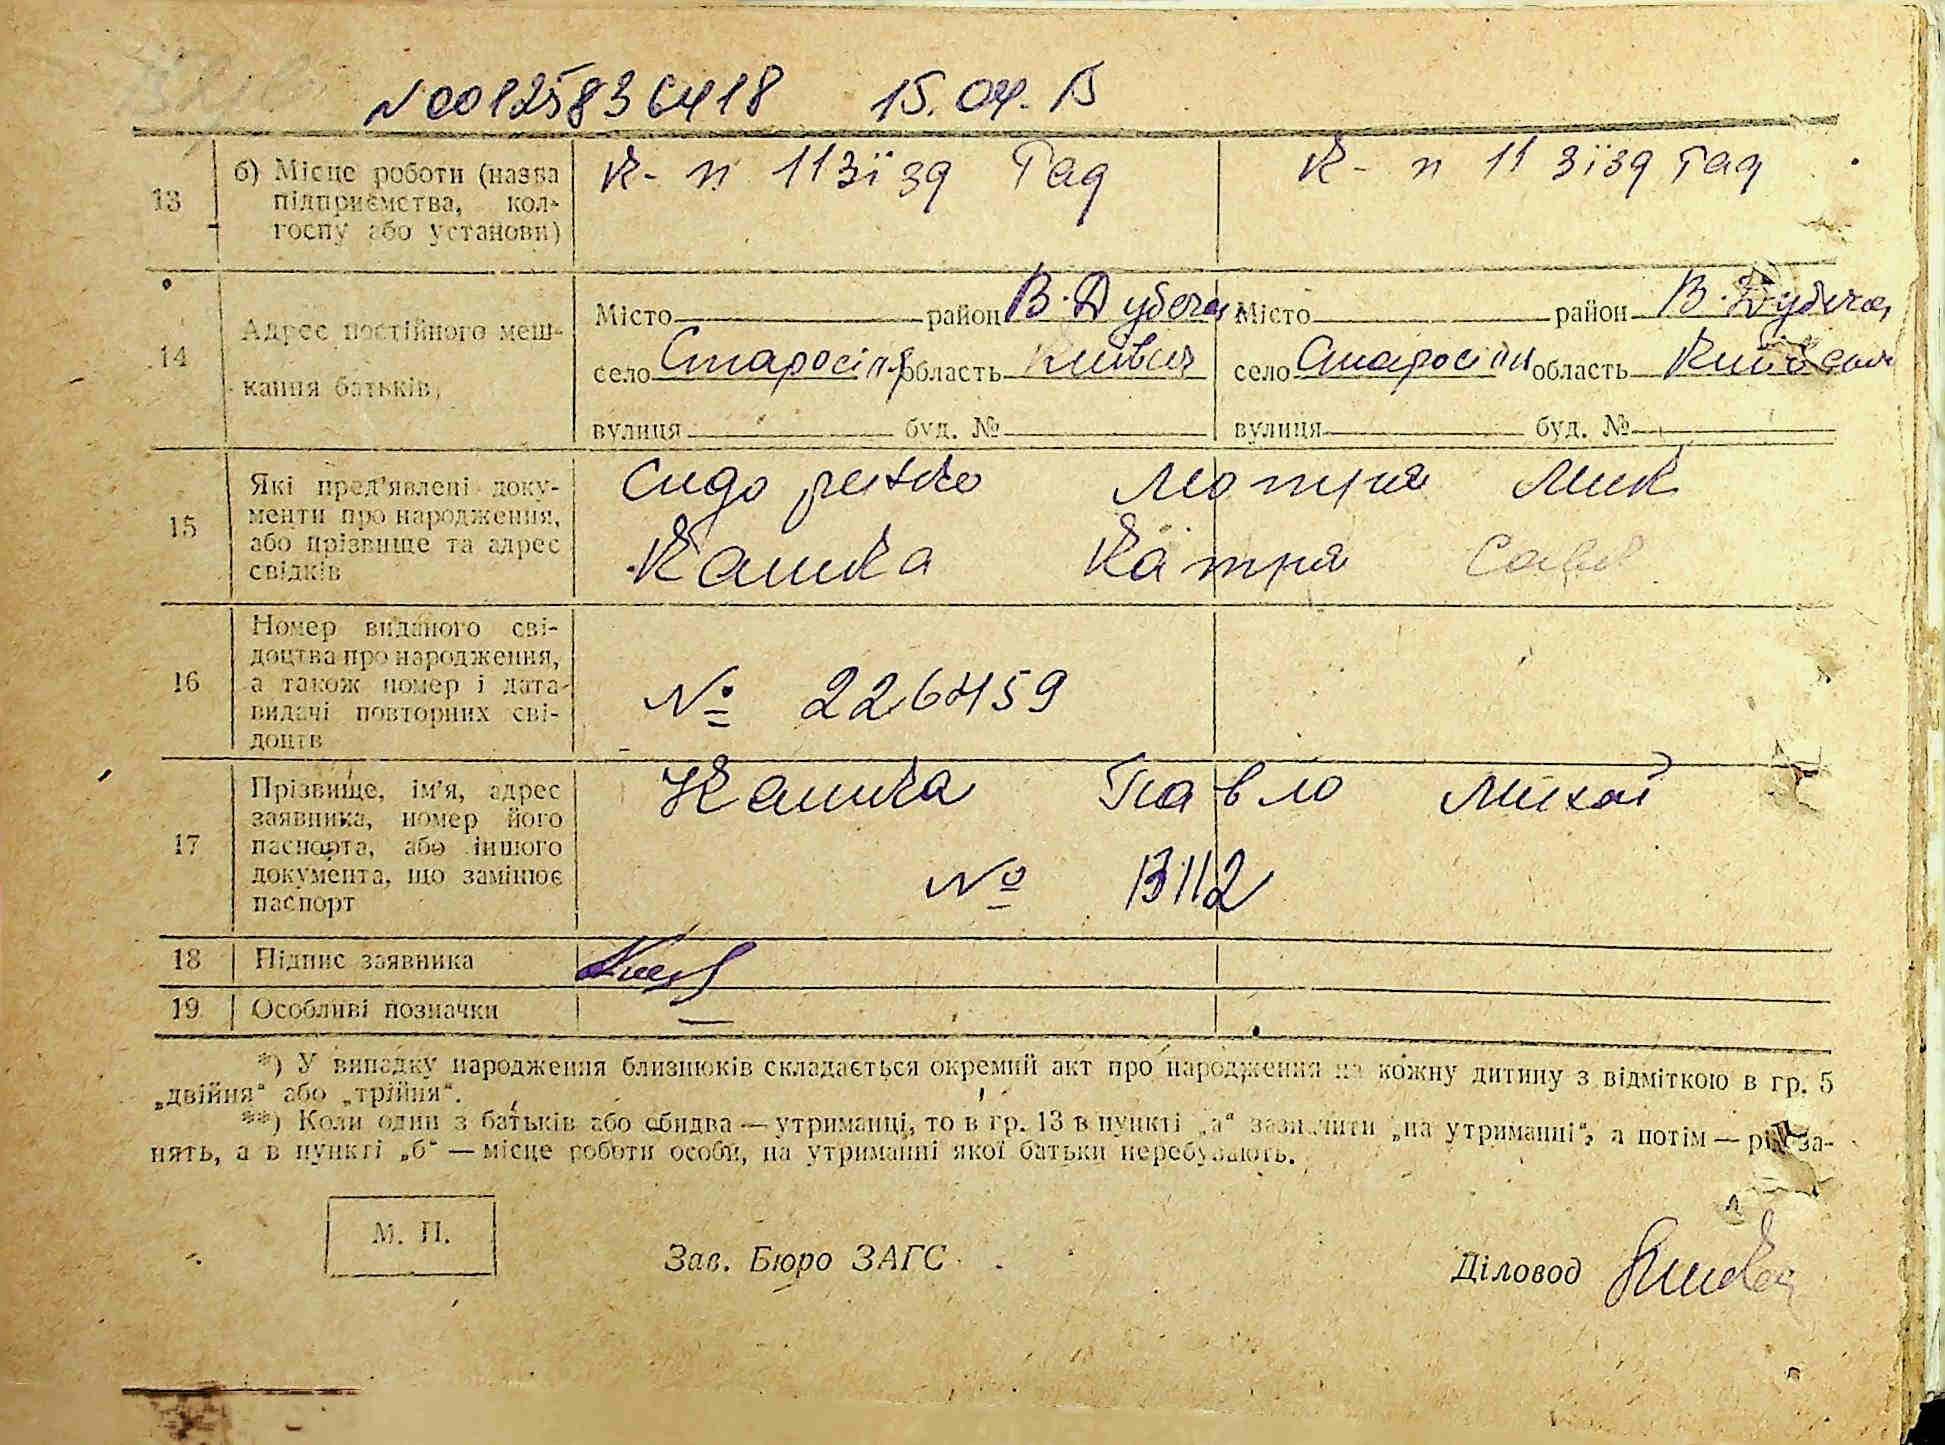 N00125836418 15.04. В
13 б) Місце роботи (назва підприємства, кол-
госпу або установи)
К- п 11 зїзд Рад К- п 11 зїзд Рад
14 Адрес постійного меш-
кання батьків,
Місто район В. Дубечан Місто район В. Дубечан
село Старосілля область Київськ село Старосілля область Київськ
вулиця буд. № вулиця буд. №
15 Які пред'явлені доку-
менти про народження,
або прізвище та адрес
свідків
Сидоренко Мотря Мик
Кашка Катря Сав
16 Номер виданого сві-
доцтва про народження,
а також номер і дата
видачі повторних сві-
доцтв
№ 226459
17 Прізвище, ім'я, адрес
заявника, номер його
паспорта, або іншого
документа, що замінює
паспорт
Кашка Павло Михай
№ 13112
18 Підпис заявника
19 Особливі позначки —
*) У випадку народження близнюків складається окремий акт про народження на кожну дитину з відміткою в гр. 5
„двійня“ або „трійня“.
**) Коли один з батьків або обидва — утриманці, то в гр. 13 в пункті „а“ зазначити „на утриманні“, а потім — рід за-
нять, а в пункті „б“ — місце роботи особи, на утриманні якої батьки перебувають.
М. П.
Зав. Бюро ЗАГС
Діловод